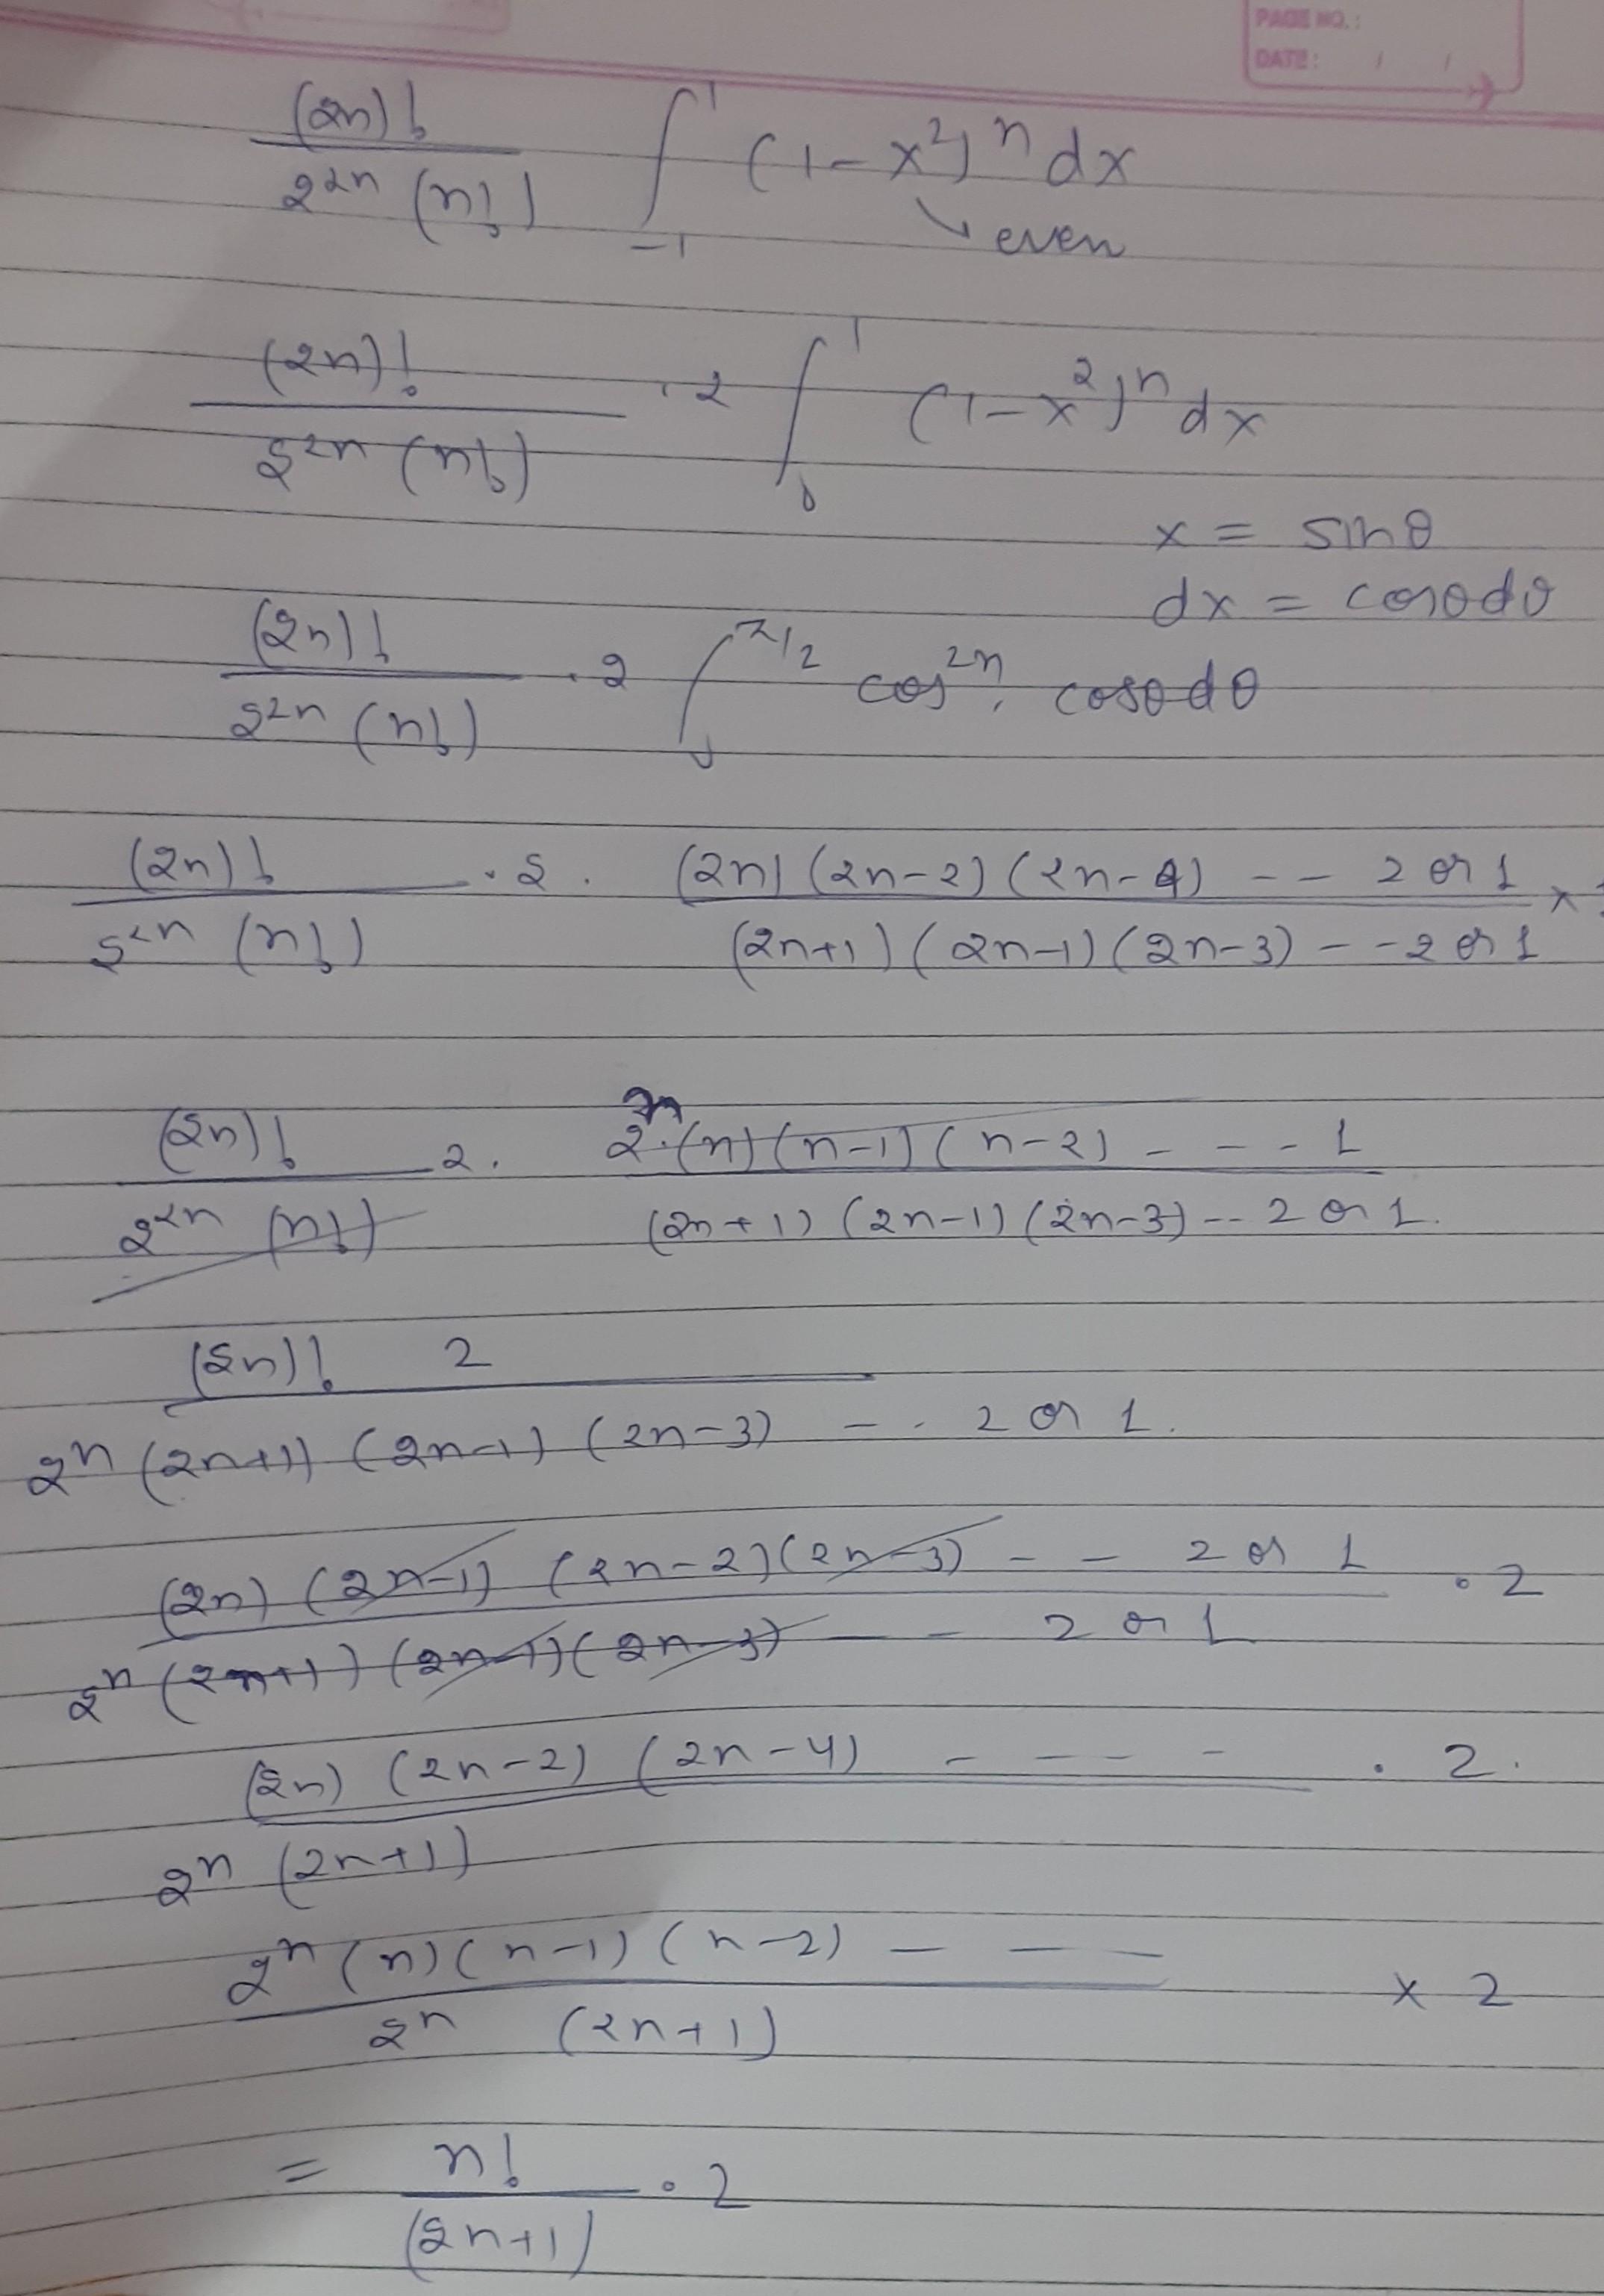 PAGE NO. :
DATE : / /
(2n)! / 2^{2n} (n!) ∫_{-1}^{1} (1-x²)^n dx
↘ even
(2n)! / 2^{2n} (n!) · 2 ∫_0^1 (1-x²)^n dx
x = sinθ
dx = cosθdθ
(2n)! / 2^{2n} (n!) · 2 ∫_0^{π/2} cos^{2n}. cosθdθ
(2n)! / 2^{2n} (n!) · 2 . (2n) (2n-2) (2n-4) -- 2 or 1 / (2n+1) (2n-1) (2n-3) -- 2 or 1 ×
(2n)! / 2^{2n} (n!) 2 . 2^n·(n) (n-1) (n-2) - - - 1 / (2n+1) (2n-1) (2n-3) -- 2 or 1.
(2n)! 2 / 2^n (2n+1) (2n-1) (2n-3) - - 2 or 1.
(2n) (2n-1) (2n-2) (2n-3) - - 2 or 1 / 2^n (2n+1) (2n-1) (2n-3) - - 2 or 1 · 2
(2n) (2n-2) (2n-4) - - - - / 2^n (2n+1) · 2.
2^n (n) (n-1) (n-2) - - - / 2^n (2n+1) × 2
= n! / (2n+1) · 2